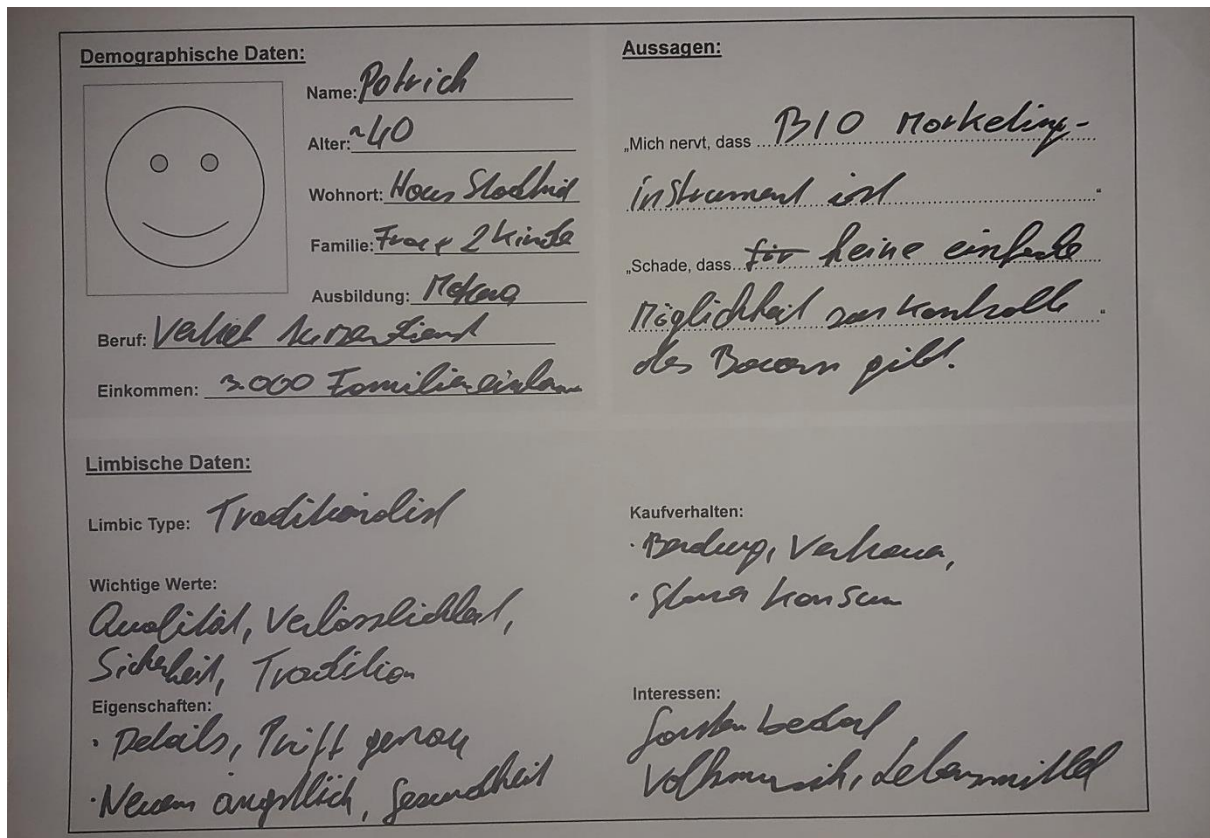 Demographische Daten:
Name: Patrick
Alter: ~40
Wohnort: Haus Stadtrand
Familie: Frau + 2 Kinder
Ausbildung: Matura
Beruf: Aussendienst
Einkommen: 3.000 Familieneinkom
Aussagen:
„Mich nervt, dass BIO Marketing-
instrument ist “
„Schade, dass keine einfache
Möglichkeit zur Kontrolle “
des Bauern gibt.
Limbische Daten:
Limbic Type: Traditionalist
Wichtige Werte:
Qualität, Verlässlichkeit,
Sicherheit, Tradition
Eigenschaften:
· Details, Prüft genau
· Neuem ängstlich, Gesundheit
Kaufverhalten:
· Vertrauen,
· Konsum
Interessen:
Gartenbedarf
Volksmusik, Lebensmittel